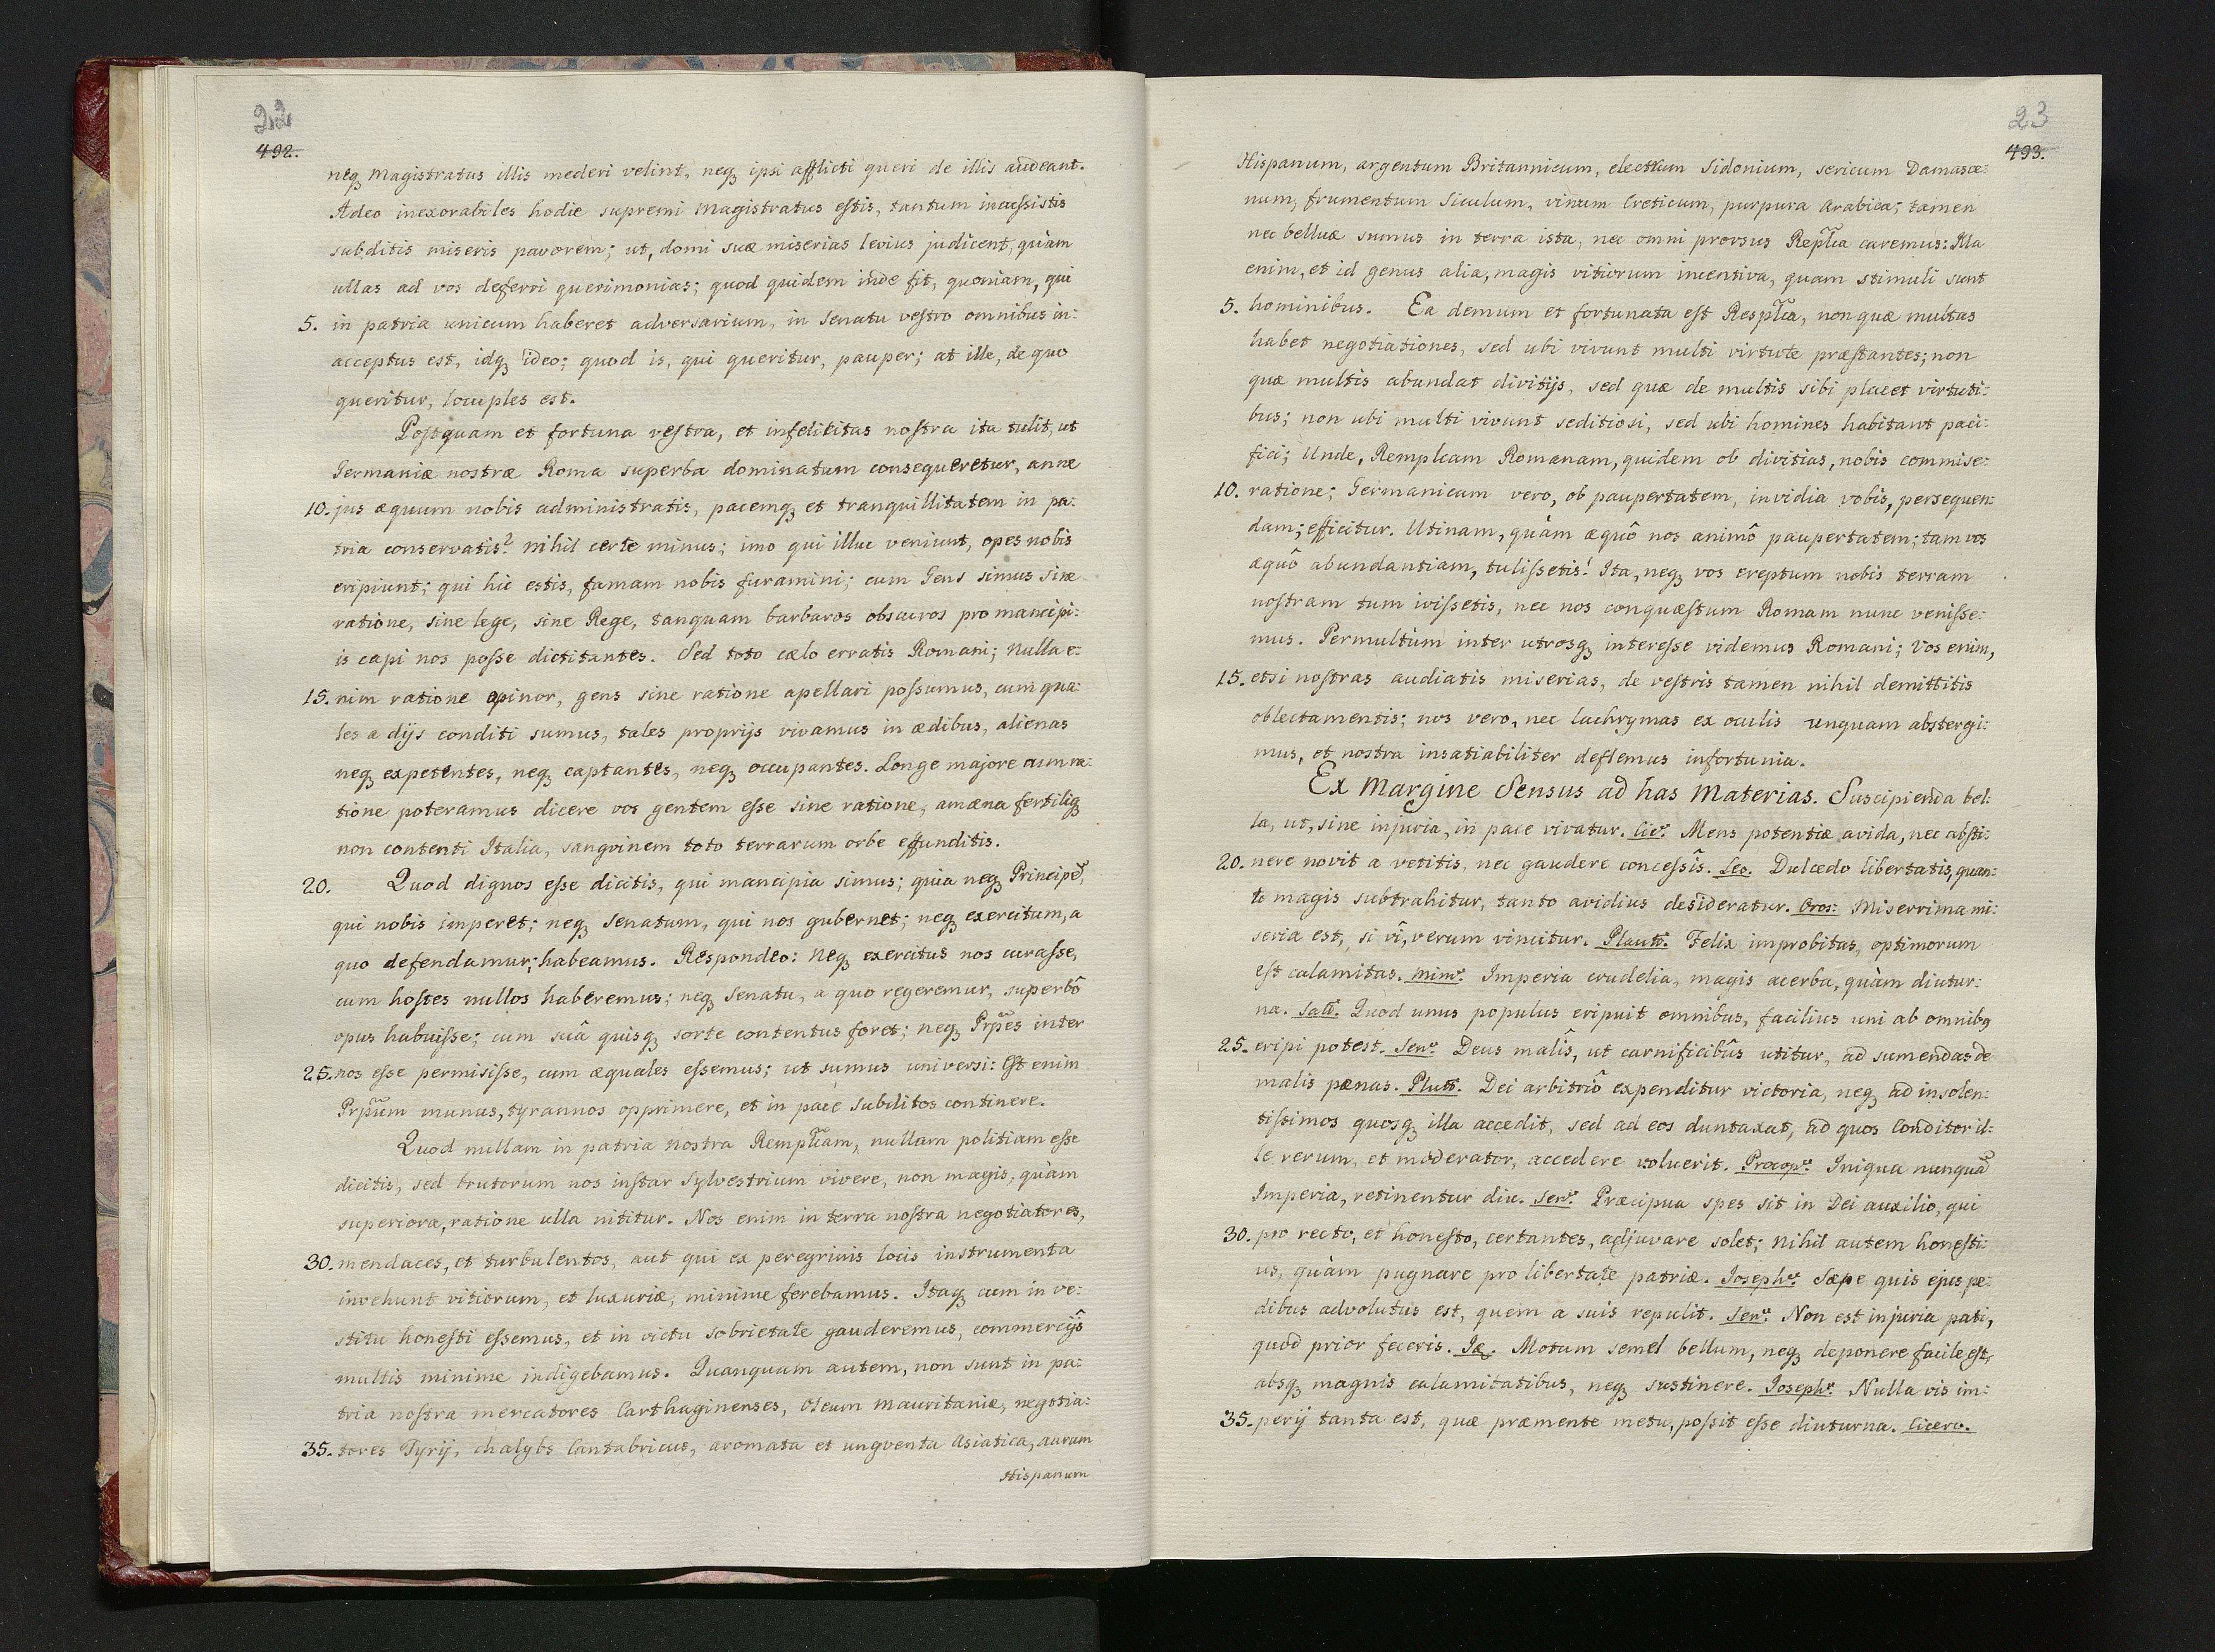 22
492.
neq3 Magistratus illis mederi velint, neq3 ipsi afflicti queri de illis audeant.
Adeo inexorabiles hodie supremi Magistratus estis, tantum incussistis
subditis miseris pavorem; ut, domi suæ miserias levius judicent, quàm
ullas ad vos deferri querimonias; quod quidem inde fit, quoniam, qui
5. in patria unicum haberet adversarium, in Senatu vestro omnibus in:
acceptus est, idq3 ideo; quod is, qui queritur, pauper; at ille, de quo
queritur, locuples est.
Postquam et fortuna vestra, et infelicitas nostra ita tulit, ut
Germaniæ nostræ Roma superba dominatum consequeretur, anne
10. jus æquum nobis administratis, pacemq3 et tranquillitatem in pa:
tria conservatis? nihil certe minus; imo qui illuc veniunt, opes nobis
eripiunt; qui hic estis, famam nobis furamini; cum Gens simus sine
ratione, sine lege, sine Rege, tanquam barbaros obscuros pro mancipi:
is capi nos posse dictitantes. Sed toto cœlo erratis Romani; Nulla e:
15. nim ratione opinor, gens sine ratione apellari possumus, cum qua:
les a dijs conditi sumus, tales proprijs vivamus in ædibus, alienas
neq3 expetentes, neq3 captantes, neq3 occupantes. Longe majore cum ra:
tione poteramus dicere vos gentem esse sine ratione, amœna fertiliq3
non contenti Italia, sangvinem toto terrarum orbe effunditis.
20. Quod dignos esse dicitis, qui mancipia simus; quia neq3 Principē,
qui nobis imperet; neq3 Senatum, qui nos gubernet; neq3 exercitum, a
quo defendamur; habeamus. Respondeo: Neq3 exercitus nos curasse,
cum hostes nullos haberemus; neq3 Senatu, a quo regeremur, superbô
opus habuisse; cum suâ quisq3 sorte contentus foret; neq3 Prp̃es inter
25. nos esse permisisse, cum æquales essemus; ut sumus universi: Est enim
Prp̃um munus, tyrannos opprimere, et in pace Subditos continere.
Quod nullam in patria nostra Remp̃lcam, nullam politiam esse
dicitis, sed brutorum nos instar sylvestrium vivere, non magis, quàm
superiora, ratione ulla nititur. Nos enim in terra nostra negotiatores,
30. mendaces, et turbulentos, aut qui ex peregrinis locis instrumenta
invehunt vitiorum, et luxuriæ, minime ferebamus. Itaq3 cum in ve:
stitu honesti essemus, et in victu sobrietate gauderemus, commercijs̑
multis minime indigebamus. Quanquam autem, non sunt in pa:
tria nostra mercatores Carthaginenses, Oleum Mauritaniæ, negotia:
35. tores Tyrij, chalybs Cantabricus, aromata et ungventa Asiatica, aurum
Hispanum
23
493.
Hispanum, argentum Britannicum, electrum Sidonium, sericum Damasce:
num, frumentum Siculum, vinum Creticum, purpura Arabica; tamen
nec belluæ sumus in terra ista, nec omni prorsus Rep̃lca caremus: Illa
enim, et id genus alia, magis vitiorum incentiva, quam stimuli sunt
5. hominibus. Ea demum et fortunata est Resp̃lca, non quæ multas
habet negotiationes, sed ubi vivunt multi virtute præstantes; non
quæ multis abundat divitijs, sed quæ de multis sibi placet virtuti:
bus; non ubi multi vivunt seditiosi, sed ubi homines habitant paci:
fici; Unde, Remplcam Romanam, quidem ob divitias, nobis commise:
10. ratione; Germanicam vero, ob paupertatem, invidia vobis, persequen:
dam; efficitur. Utinam, quàm æquô nos animô paupertatem; tam vos
æquô abundantiam, tulissetis! Ita, neq3 vos ereptum nobis terram
nostram tum ivissetis, nec nos conquæstum Romam nunc venisse:
mus. Permultùm inter utrosq3 interesse videmus Romani; Vos enim,
15. etsi nostras audiatis miserias, de vestris tamen nihil demittitis
oblectamentis; nos vero, nec lachrymas ex oculis unquam abstergi:
mus, et nostra insatiabiliter deflemus infortunia.
Ex Margine Sensus ad has Materias. Suscipienda bel:
la, ut, sine injuria, in pace vivatur. Cic: Mens potentiæ avida, nec absti:
20. nere novit a vetitis, nec gaudere concessis̑. Leo. Dulcedo libertatis, quan:
to magis subtrahitur, tanto avidius desideratur. Oros: Miserrima mi:
seria est, si vî, verum vincitur. Plaut. Felix improbitas, optimorum
est calamitas. Mim: Imperia crudelia, magis acerba, quàm diutur:
na. Sall. Quod unus populus eripuit omnibus, facilius uni ab omnib9
25. eripi potest. Sen: Deus malis̑, ut carnificibus̑ utitur, ad sumendas de
malis pœnas. Plut. Dei arbitriô expenditur victoria, neq3 ad insolen:
tissimos quosq3 illa accedit, sed ad eos duntaxat, ad quos Conditor il:
le rerum, et moderator, accedere voluerit. Procop: Iniqua nunquā
Imperia, retinentur diu. Sen: Præcipua spes sit in Dei auxilio, qui
30. pro recto, et honesto, certantes, adjuvare solet; Nihil autem honesti:
us, quàm pugnare pro libertate patriæ. Joseph: Sæpe quis ejus pe:
dibus advolutus est, quem a suis repulit. Sen: Non est injuria pati,
quod prior feceris. Id. Motum semel bellum, neq3 deponere facile est,
absq3 magnis calamitatibus, neq3 sustinere. Joseph: Nulla vis im:
35. perij tanta est, quæ præmente metu, possit esse diuturna. Cicero.